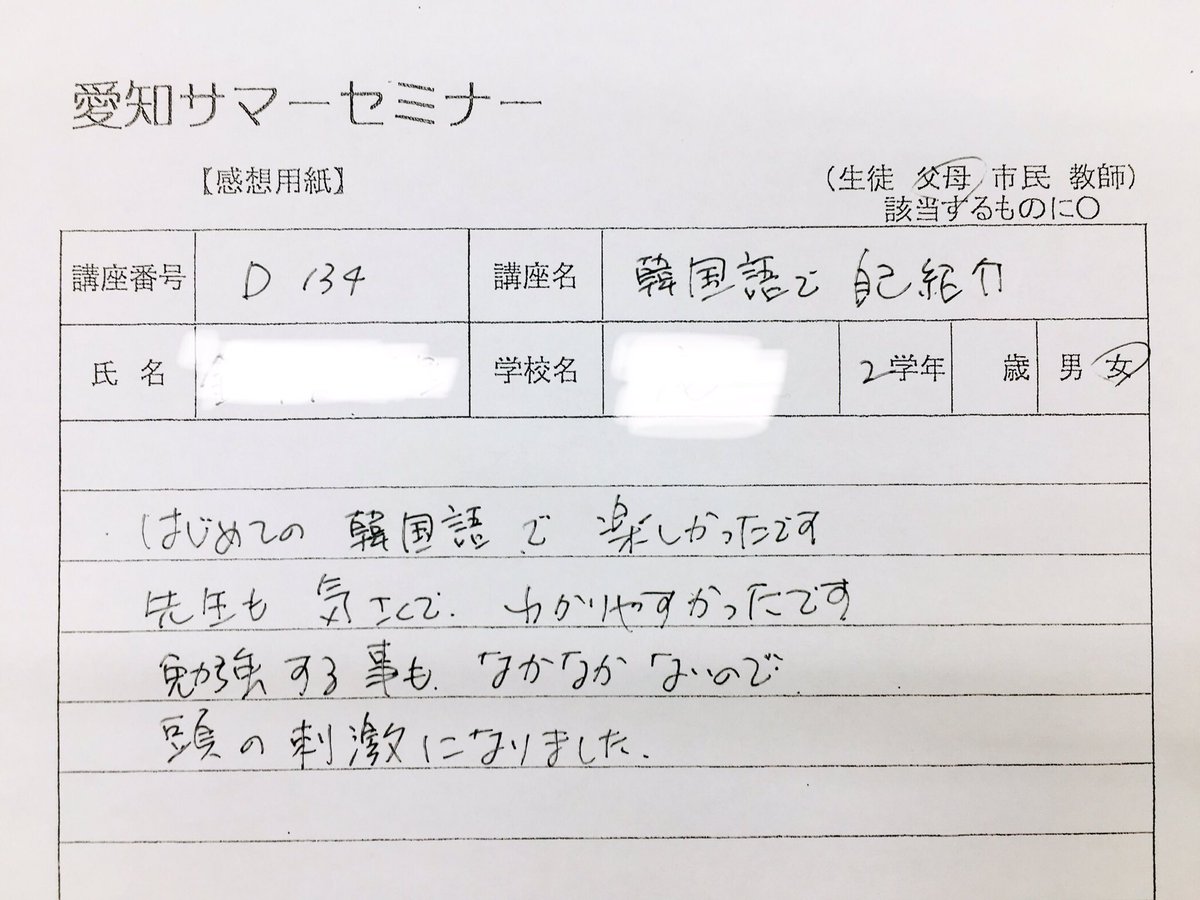 愛知サマーセミナー
【感想用紙】
(生徒 父母 市民 教師)
該当するものに○
講座番号 D 134 講座名 韓国語で 自己紹介
氏 名 学校名 2学年 歳 男 女
はじめての 韓国語で 楽しかったです
先生も 気さくで、わかりやすかったです
勉強する事も、なかなかないので、
頭の刺激になりました.